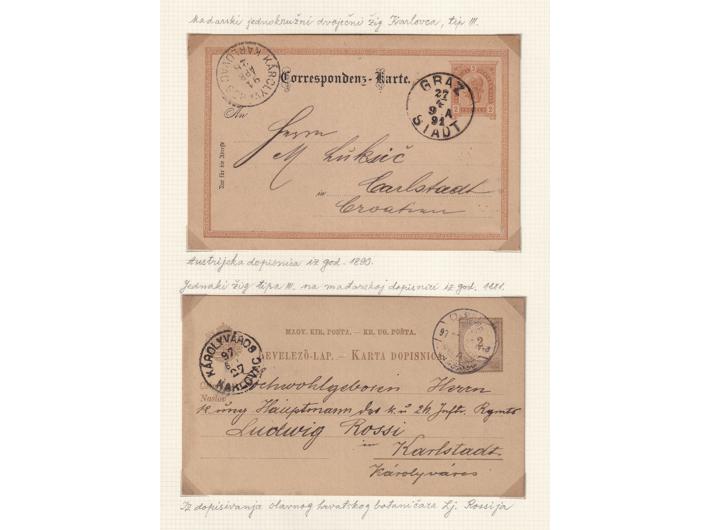 Mađarski jednokružni dvojezični žig Karlovca, tip III.
KÁROLYVÁROS
KARLOVAC
94
APR
Correspondenz-Karte.
GRAZ
27
4
9 A
94
STADT
2
2
An
Herrn
M Lukšić
in Carlstadt
Croatien
Nur für die Adresse
Austrijska dopisnica iz god. 1890.
Jednaki žig tipa III. na mađarskoj dopisnici iz god. 1881.
MAGY. KIR. POSTA. – KR. UG. POŠTA.
LEVELEZŐ-LAP. – KARTA DOPISNICA
KÁROLYVÁROS
97
27
KARLOVAC
97
2
Hochwohlgeboren Herrn
Naslov
k ung Hauptmann des k. u 26 Inft. Rgmts
Ludwig Rossi
in
Karlstadt.
Károlyváros
Iz dopisivanja slavnog hrvatskog botaničara Lj. Rossija